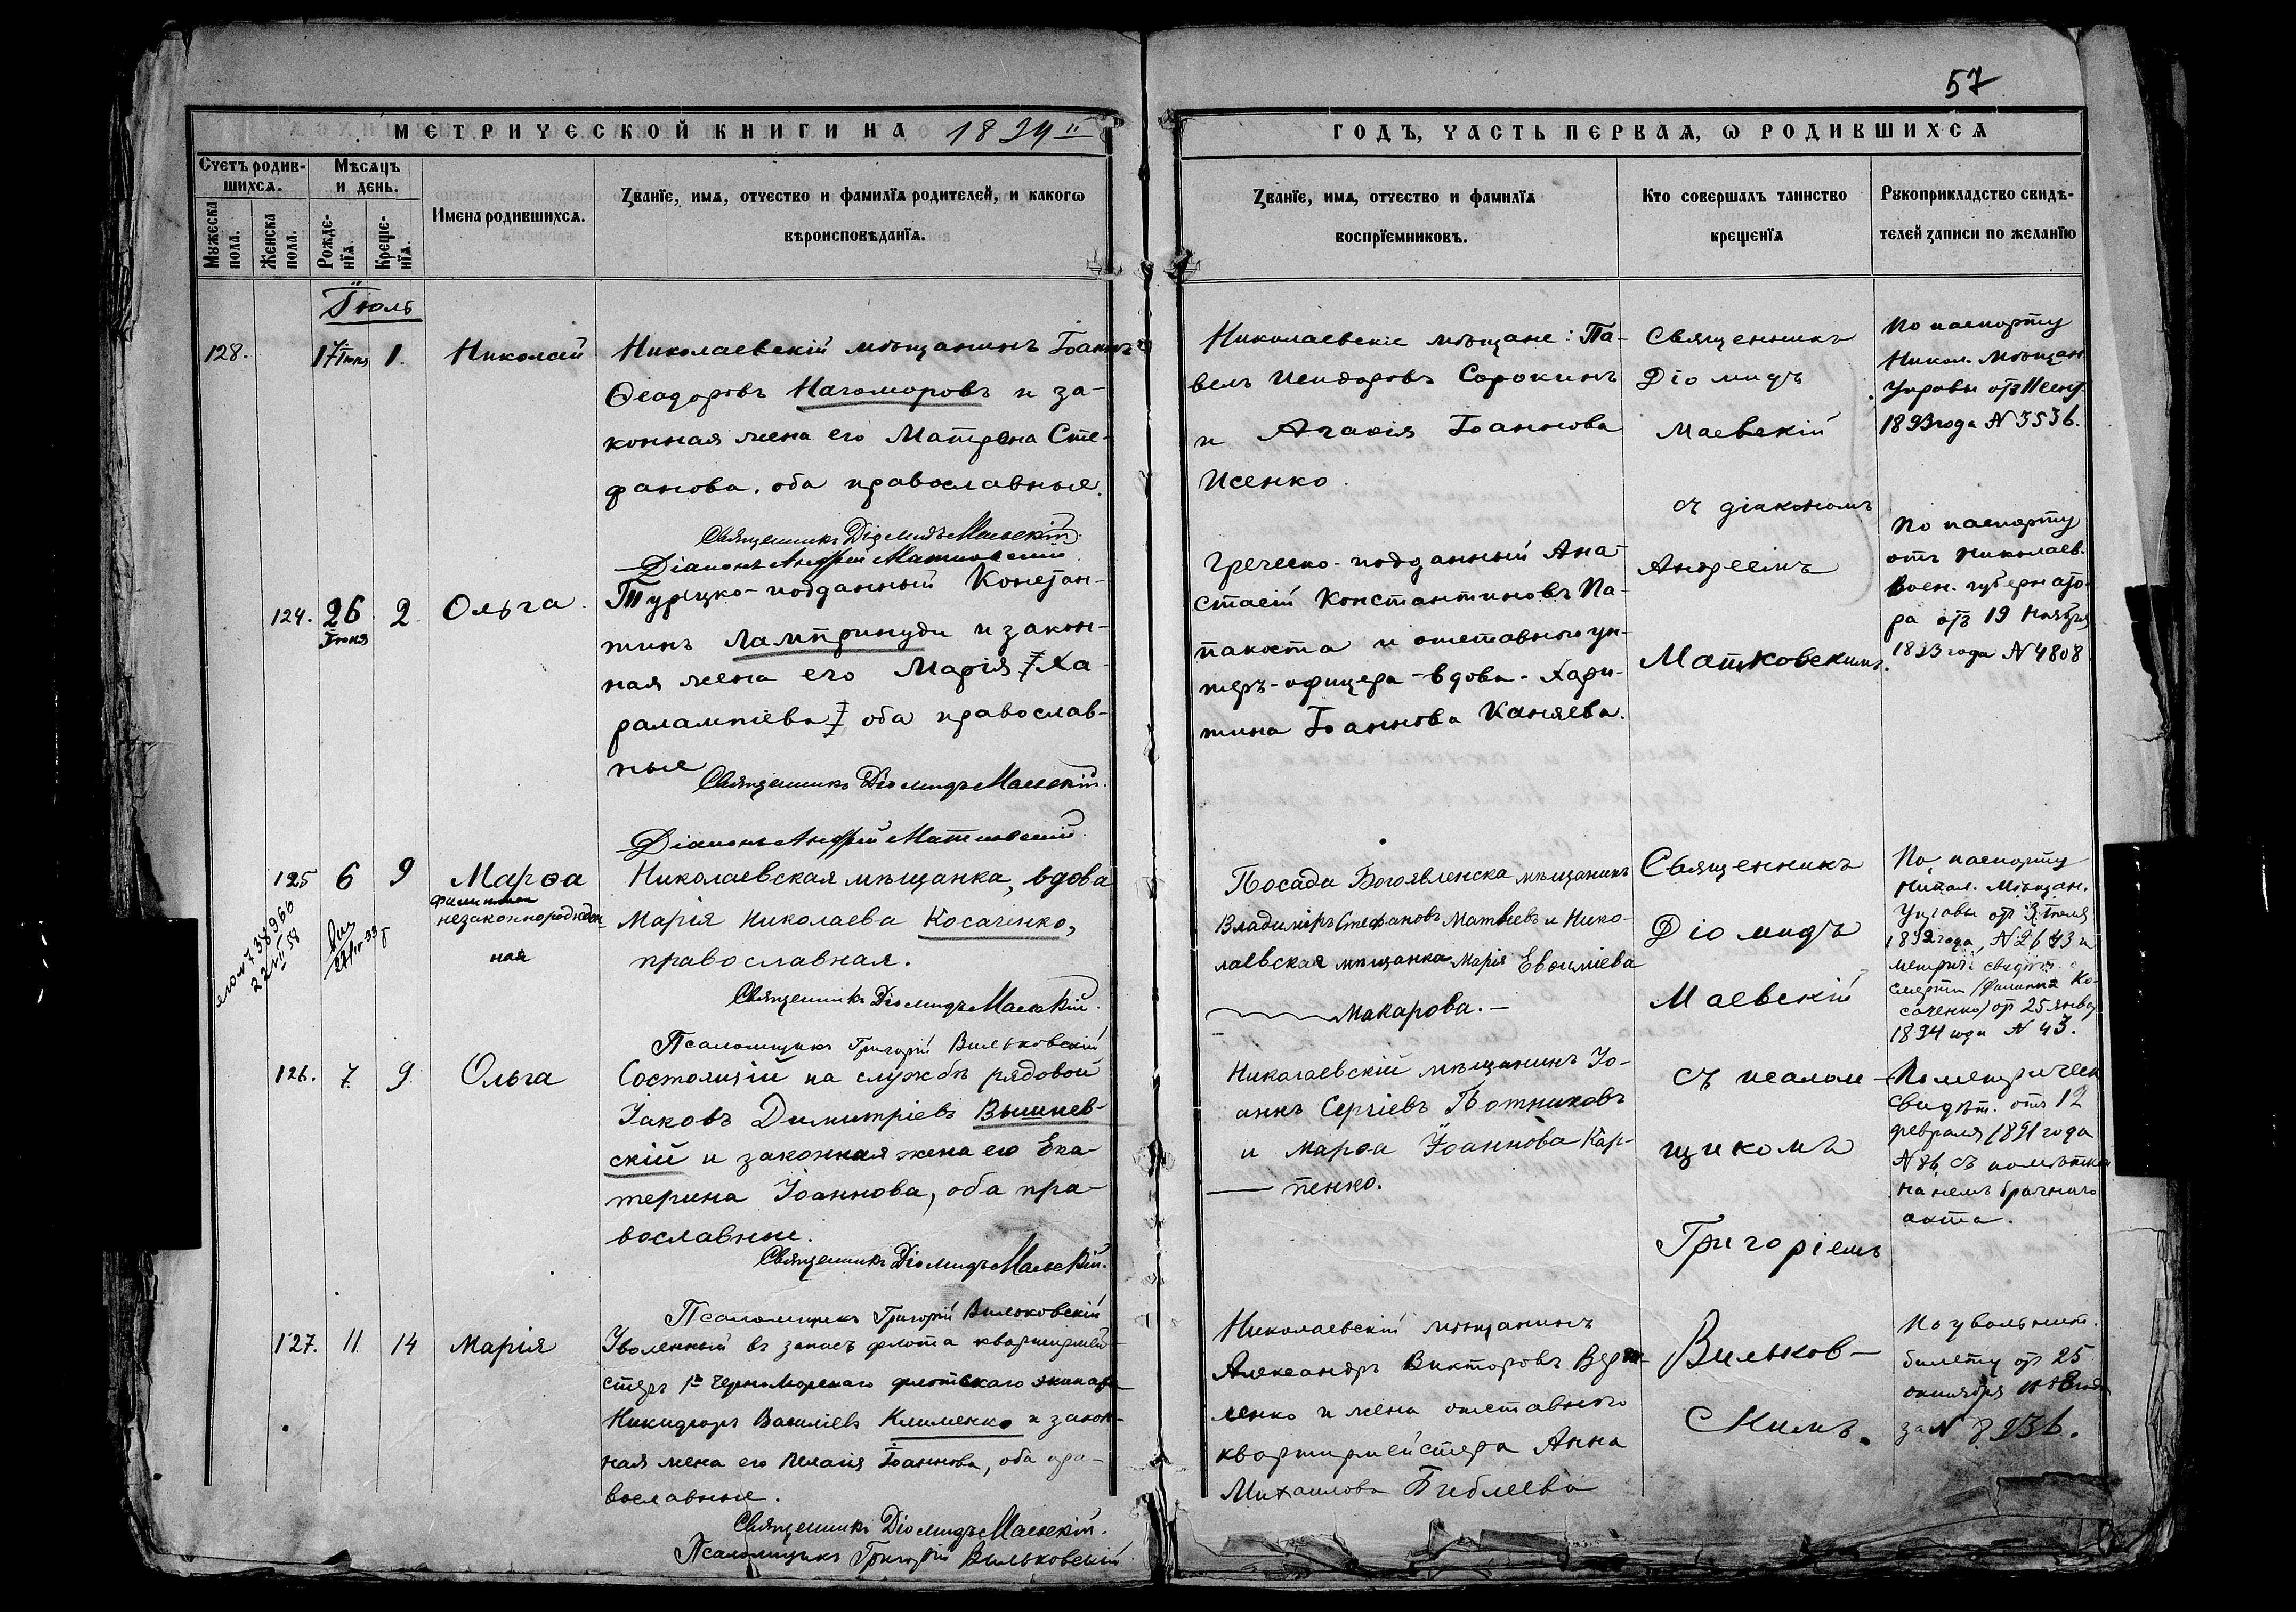 57
МЕТРИЧЕСКОЙ КНИГИ НА 1894й
ГОДЪ, ЧАСТЬ ПЕРВАЯ, Ѡ РОДИВШИХСЯ
Счетъ родив-
шихся.
Мѣсяцъ
и день.
Мужеска
пола.
Женска
пола.
Рожде-
нїя.
Креще-
нїя.
Имена родившихся.
Званїе, имя, отчество и фамилїя родителей, и какогѡ
вѣроисповѣданїя.
Званїе, имя, отчество и фамилїя
воспрїемниковъ.
Кто совершалъ таинство
крещенїя
Рукоприкладство свидѣ-
телей записи по желанїю
Іюль
128.
17 Іюня
1.
Николай
Николаевскій мѣщанинъ Іоаннъ
Ѳеодоровъ Нагоморовъ и за-
конная жена его Матрона Сте-
фанова, оба православные.
Священникъ Діомидъ Маевскій
Діаконъ Андрей Матковскій
Николаевскіе мѣщане: Па-
велъ Исидоровъ Сорокинъ
и Агафія Іоаннова
Исенко.
Священникъ
Діомидъ
Маевскій
съ діакономъ
Андреемъ
Матковскимъ.
По паспорту
Никол. Мѣщан
Управы отъ 11 сент
1893 года N 3536.
124.
26
Іюня
2
Ольга.
Турецко-подданный Констан-
тинъ Лампринуди и закон-
ная жена его Марія Ха-
ралампіева оба православ-
ные
Священникъ Діомидъ Маевскій.
Діаконъ Андрей Матковскій.
Греческо-подданный Ана-
стасій Константиновъ Па-
пакоста и отставного ун-
теръ-офицера-вдова-Хари-
тина Іоаннова Каняева.
По паспорту
отъ Николаев.
Воен. губернато-
ра отъ 19 Ноября
1893 года N 4808
125
6
9
Марѳа
незаконнорожден-
ная
22 III 58
Николаевская мѣщанка, вдова
Марія Николаева Косаченко,
православная.
Священникъ Діомидъ Маевскій.
Псаломщикъ Григорій Вильковскій
Посада Богоявленска мѣщанинъ
Владиміръ Стефановъ Матвѣевъ и Нико-
лаевская мѣщанка Марія Евѳиміева
Макарова.-
Священникъ
Діомидъ
Маевскій
съ псалом-
щикомъ
Григоріемъ
Вильков-
скимъ.
По паспорту
Никол. Мѣщан.
Управы отъ 3 Іюля
1892 года, N 2643 и
метрич. свидѣт.
смерти (Филиппа Ко-
саченко) отъ 25 январ
1894 года N 43.
126.
7.
9.
Ольга
Состоящій на службѣ рядовой
Іаковъ Димитріевъ Вышнев-
скій и законная жена его Ека-
терина Іоаннова, оба пра-
вославные.
Священникъ Діомидъ Маевскій.
Псаломщикъ Григорій Вильковскій
Николаевскій мѣщанинъ Іо-
аннъ Сергіевъ Ботниковъ
и Марѳа Іоаннова Кар-
пенко.
По метричес
свидѣт. отъ 12
февраля 1891 года
N 86, съ помѣткою
на немъ брачнаго
акта.
127.
11
14
Марія
Уволенный въ запасъ флота квартирмей-
стеръ 1го Черноморскаго флотскаго экипажа
Никифоръ Василіевъ Клименко и закон-
ная жена его Пелагія Іоаннова, оба пра-
вославные.
Священникъ Діомидъ Маевскій.
Псаломщикъ Григорій Вильковскій
Николаевскій мѣщанинъ
Александръ Викторовъ
и жена отставного
квартирмейстера Анна
Михаилова Библеева
По увольнит.
билету отъ 25
октября
за N 8936.